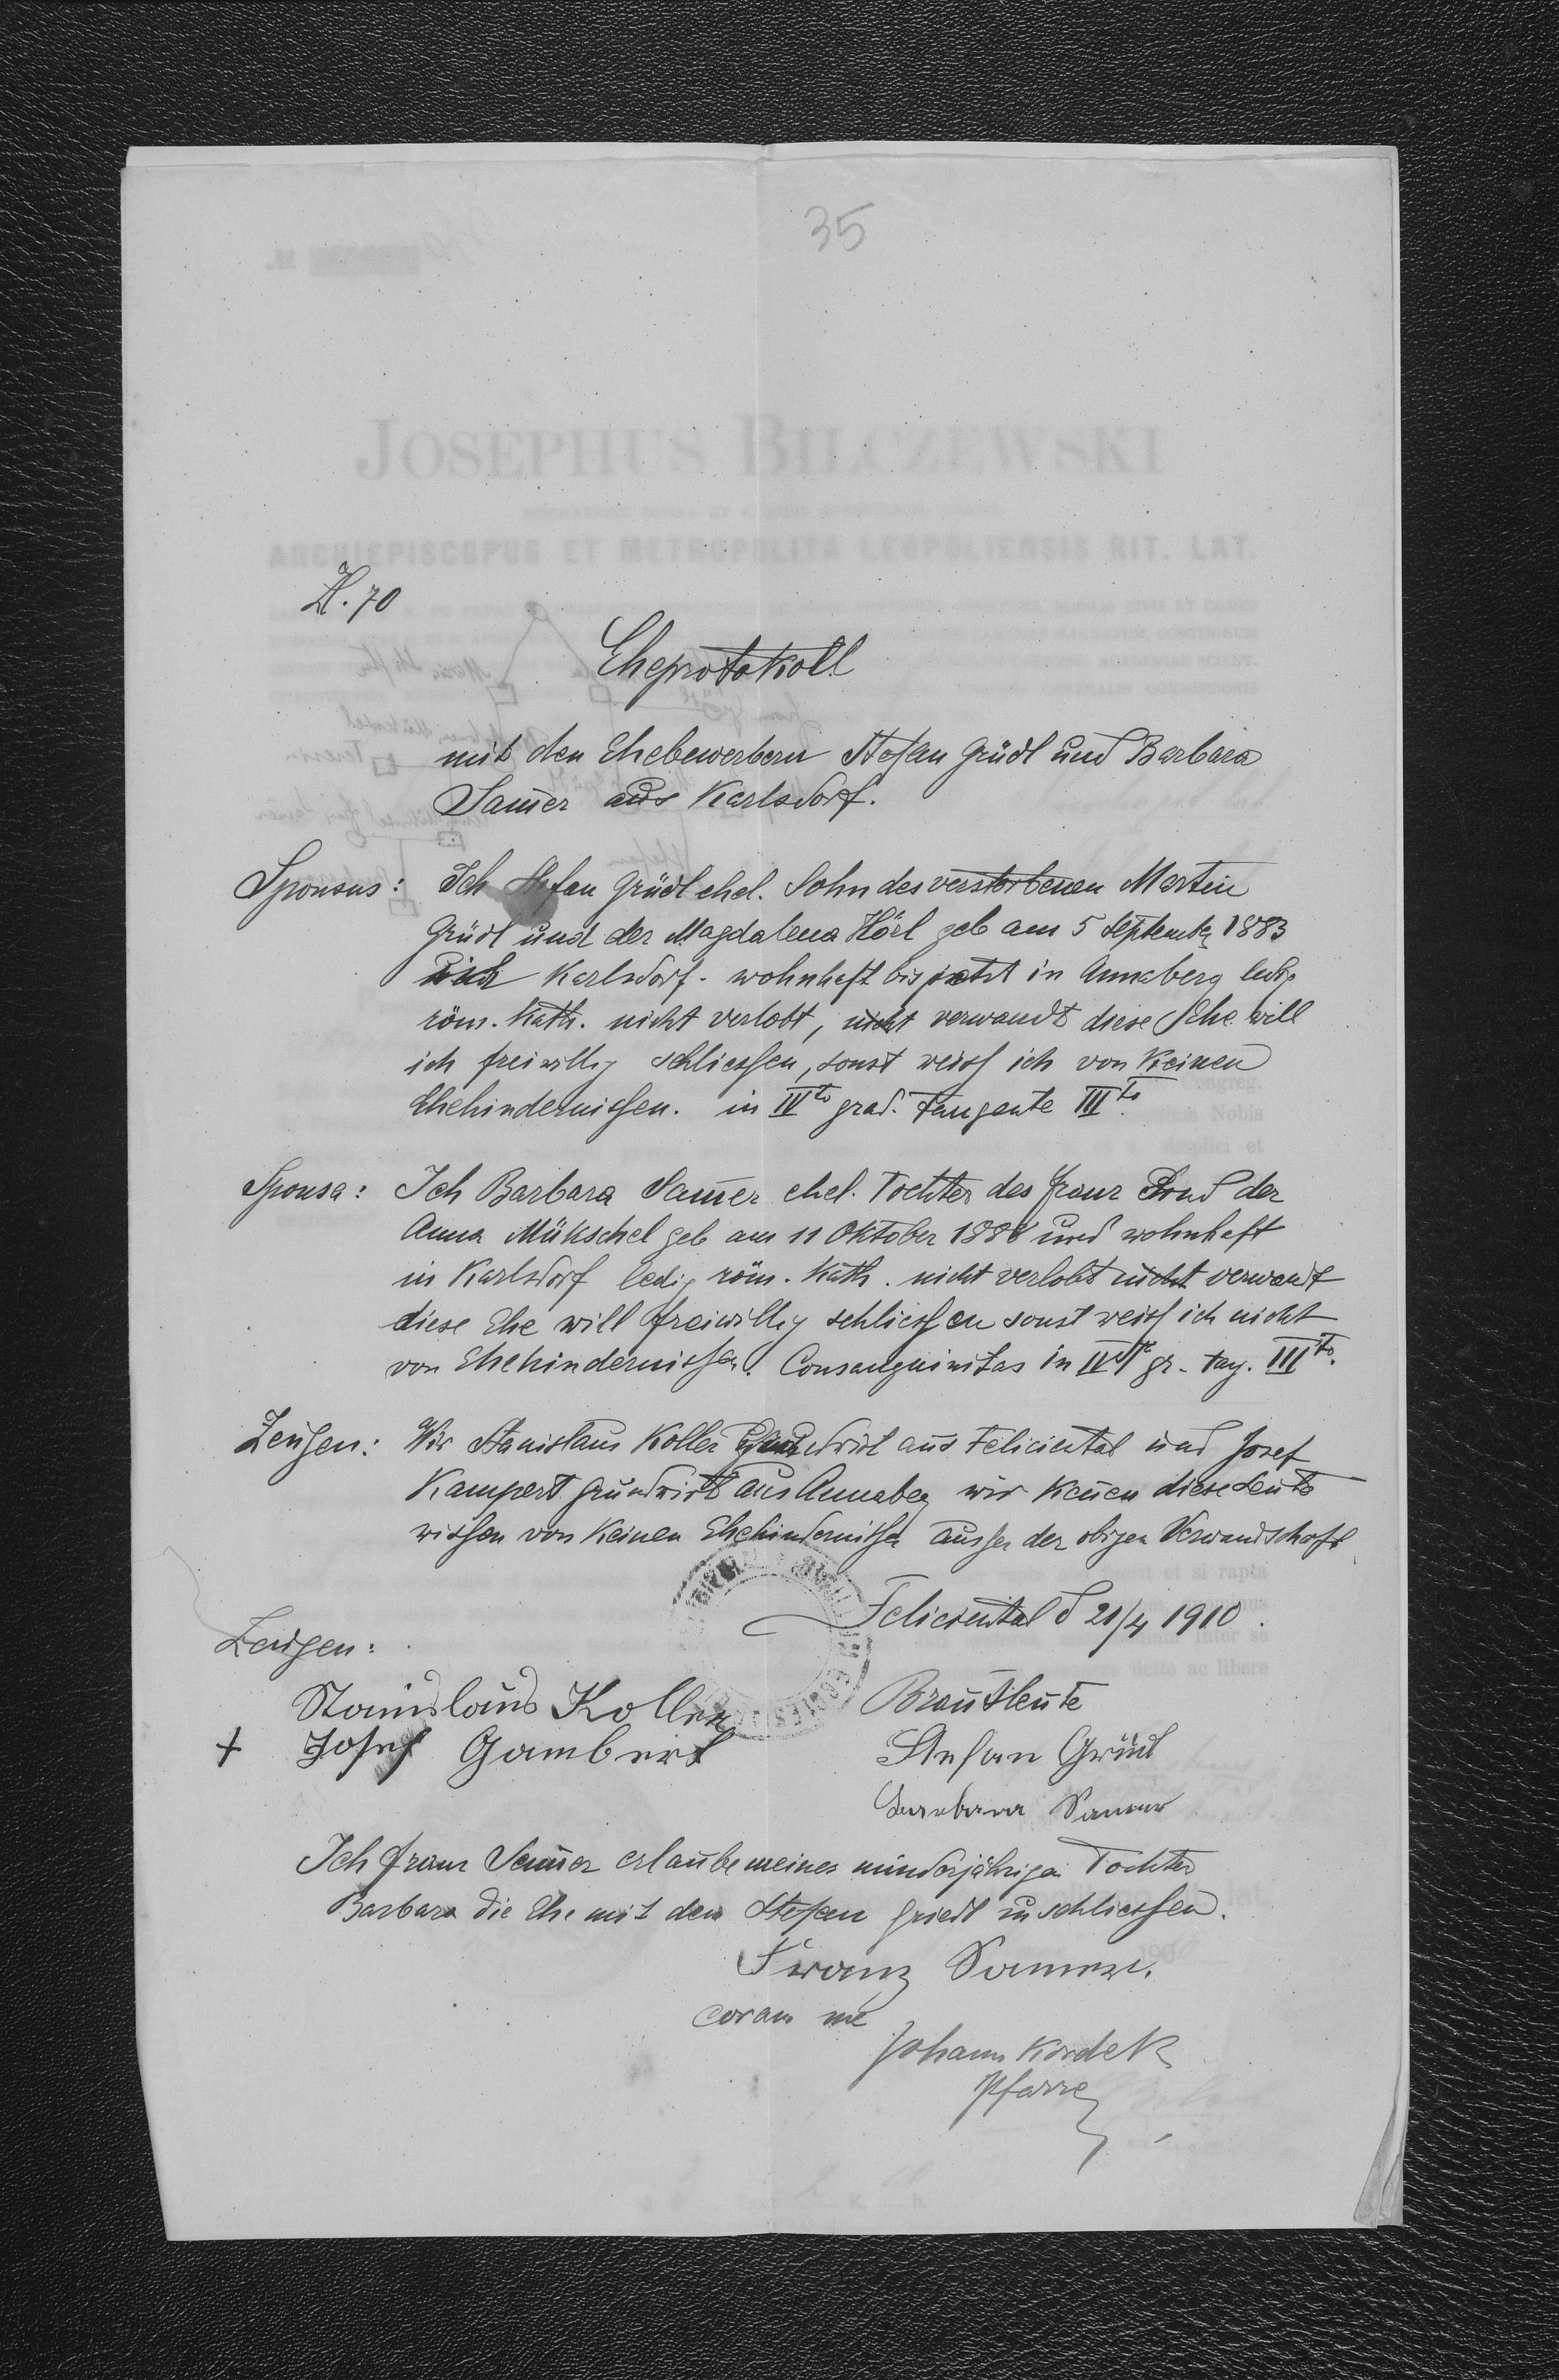 35
Z. 70
Eheprotokoll
mit den Ehebewerbern Stefan Grüdl und Barbara
Sam̄er aus Karlsdorf.
Sponsus: Ich Stefan Grüdl ehel. Sohn des verstorbenen Martin
Grüdl und der Magdalena Hörl geb am 5 September 1883
Karlsdorf. wohnhaft bis jetzt in Annaberg ledig
röm. kath. nicht verlobt, nicht verwandt diese Ehe will
ich freiwillig schliessen, sonst weiss ich von keinen
Ehehindernissen. in IVto grad. tangente IIIto.
Sponsa: Ich Barbara Sam̄er ehel. Tochter des Franz und der
Anna Mükschel geb am 11 Oktober 1888 und wohnhaft
in Karlsdorf ledig röm. kath. nicht verlobt nicht verwandt
diese Ehe will freiwillig schliessen sonst weiss ich nicht
von Ehehindernissen. Consanguinitas in IVto gr. tag. IIIto.
Zeugen: Wir Stanislaus Koller Grundwirt aus Feliciental und Josef
Kampert Grundwirt aus Annaberg wir ken̄en diese Leute
wissen von keinen Ehehindernissen ausser der obigen Verwandschaft
Feliciental d 21/4 1910.
Zeugen:
Stanislaus Koller
Brautleute
+ Josef Gambert
Stefan Grüdl
Barbara Sammer
Ich Franz Sam̄er erlaube meiner minderjährigen Tochter
Barbara die Ehe mit dem Stefan Griedl zu schliessen.
Franz Sammer.
coram me
Johann Kordek
Pfarrer
JOSEPHUS BILCZEWSKI
ARCHIEPISCOPUS ET METROPOLITA LEOPOLIENSIS RIT. LAT.